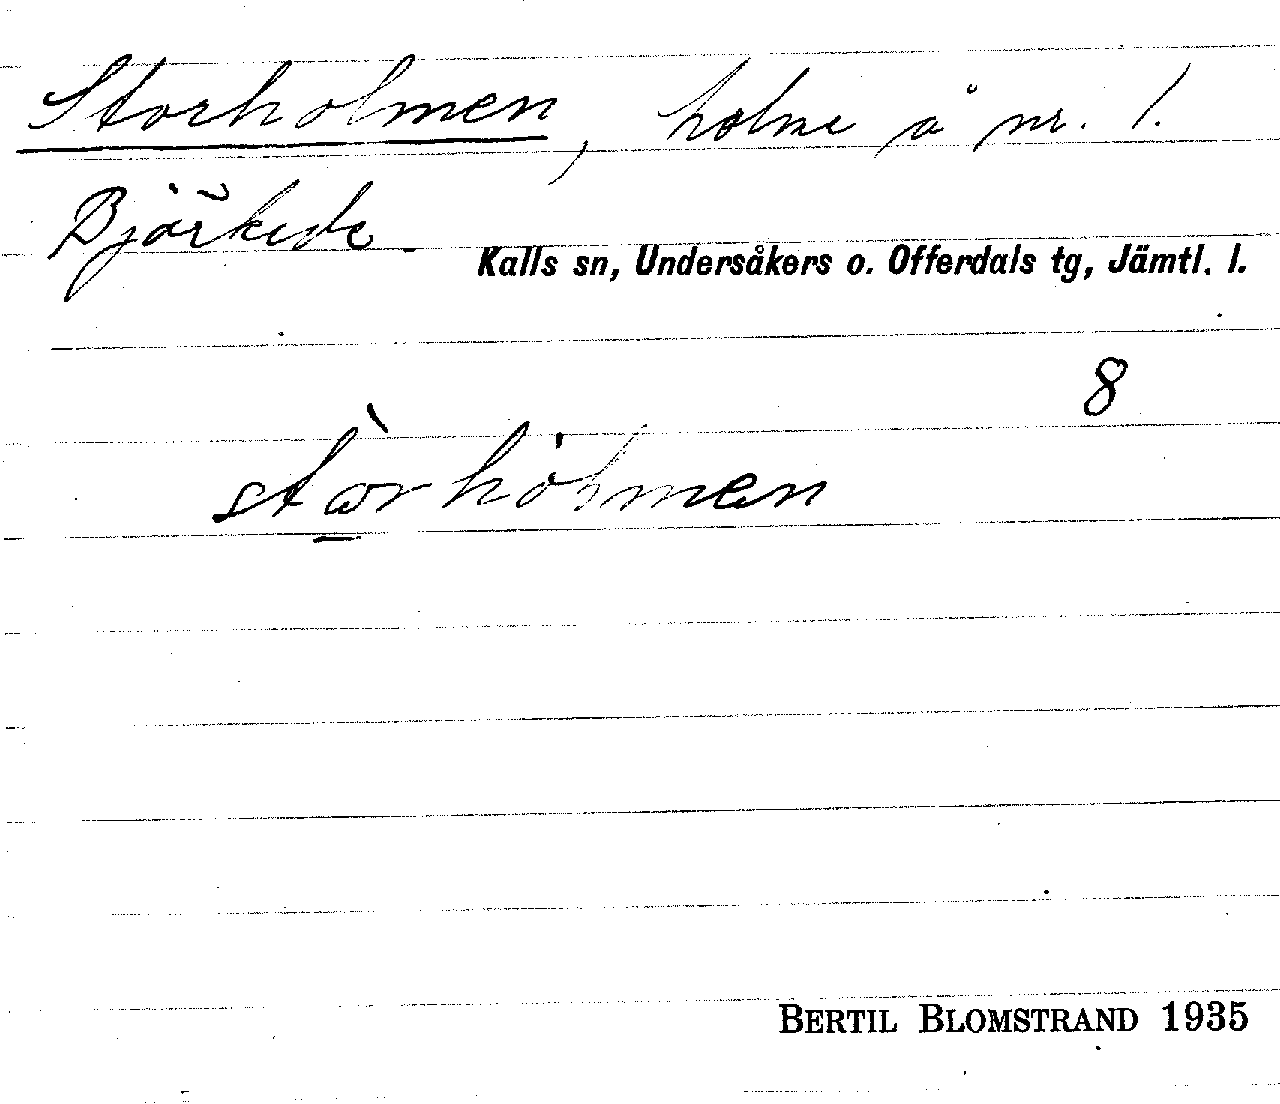 Storholmen, holme å nr. 1.
Björkede
Kalls sn, Undersåkers o. Offerdals tg, Jämtl. l.
8
stòrhólmen
BERTIL BLOMSTRAND 1935